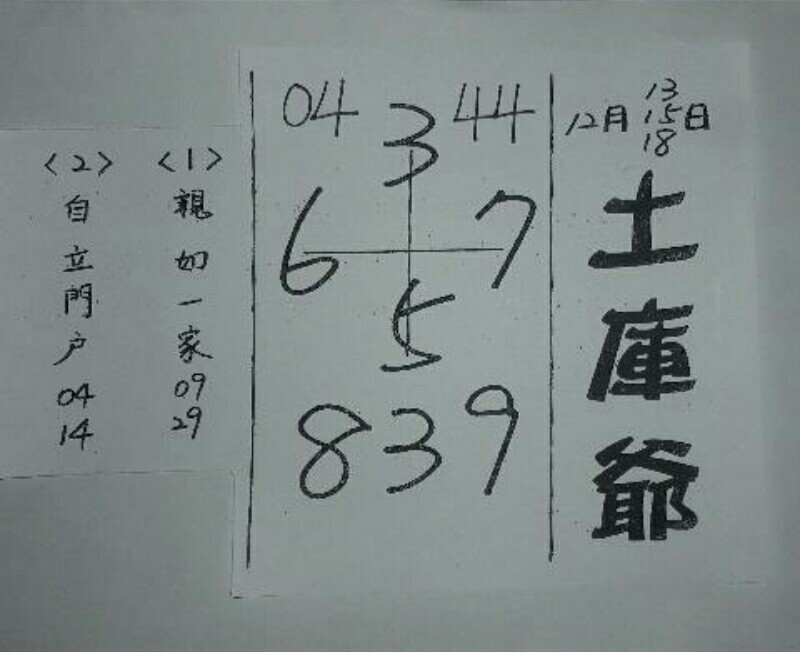 12月 13 15 18 日
土庫爺
04 44
3
6 7
5
839
<1>
親如一家
09
29
<2>
自立門户
04
14